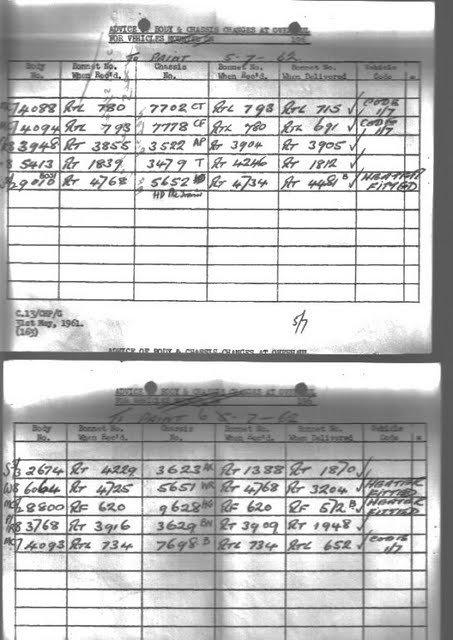 ADVICE OF BODY & CHASSIS CHANGES AT OVERHAUL
FOR VEHICLES 196
To PAINT 5-7-62
Body No. Bonnet No. When Rec'd. Chassis No. Bonnet No. When Rec'd. Bonnet No. When Delivered Vehicle Code *
4088 RTL 780 7702 CT RTL 793 RTL 715 ✓ CODE 1/7
4094 RTL 793 7778 CF RTL 780 RTL 691 ✓ CODE 1/7
3948 RT 3855 3582 AP RT 3904 RT 3905 ✓
5413 RT 1839 3479 T RT 4246 RT 1812 ✓
9070 RT 4768 5652 RT 4734 RT 4481 B ✓ HEATER FITTED
C.13/CHP/G
31st May, 1961.
(163)
5/7
ADVICE OF BODY & CHASSIS CHANGES AT OVERHAUL
ADVICE OF BODY & CHASSIS CHANGES AT OVERHAUL
FOR VEHICLES 196
To PAINT 5-7-62
Body No. Bonnet No. When Rec'd. Chassis No. Bonnet No. When Rec'd. Bonnet No. When Delivered Vehicle Code *
2674 RT 4229 3623 RT 1388 RT 1870 ✓
6064 RT 4725 5651 WR RT 4768 RT 3204 ✓ HEATER FITTED
8800 RF 620 9628 RF 620 RF 512 B ✓ HEATER FITTED
3768 RT 3916 3629 BN RT 3909 RT 1948 ✓
4093 RTL 734 7698 B RTL 734 RTL 652 ✓ CODE 1/7